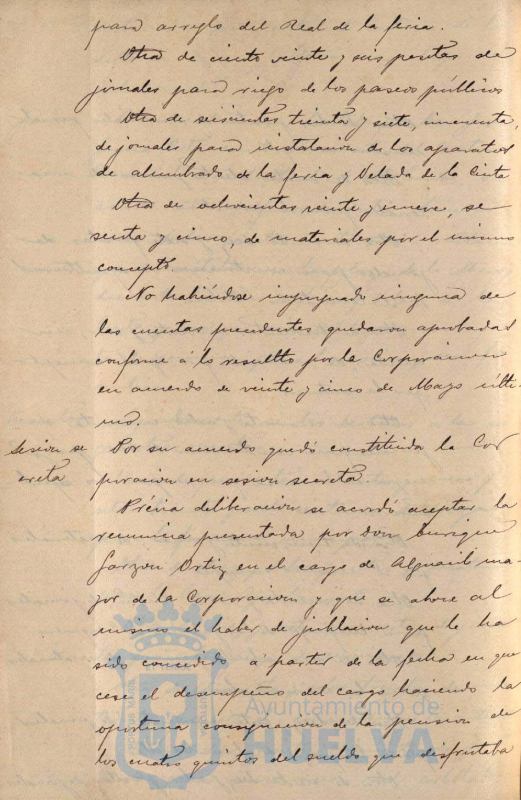 para arreglo del Real de la feria.
Otra de ciento veinte y seis pesetas de
jornales para riego de los paseos públicos
Otra de seiscientas treinta y siete, cincuenta,
de jornales para instalacion de los aparatos
de alumbrado de la feria y Velada de la Cinta
Otra de ochocientas veinte y nueve, se
senta y cinco, de materiales por el mismo
concepto.
No habiéndose impugnado ninguna de
las cuentas precedentes quedaron aprobadas
conforme á lo resuelto por la Corporacion
en acuerdo de veinte y cinco de Mayo últi-
mo.
Sesion se
creta
Por su acuerdo quedó constituida la Cor
poracion en sesion secreta
Prévia deliberacion se acordó aceptar la
renuncia presentada por Don Enrique
Garzon Ortiz en el cargo de Alguacil ma-
yor de la Corporacion y que se abone al
mismo el haber de jubilacion que le ha
sido concedido á partir de la fecha en que
cese el desempeño del cargo haciendo la
oportuna consignacion de la pension de
los cuatro quintos del sueldo que disfrutaba
Ayuntamiento de
HUELVA